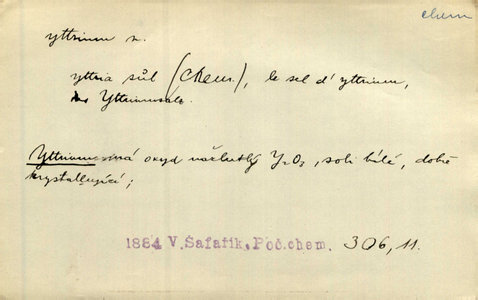 chem
yttrium n.
yttria sůl (Chem.), le sel d'yttrium,
Yttriumsalz.
Yttrium má oxyd nažlutlý Y₂O₃, soli bílé, dobře
krystallující;
1884 V. Šafařík, Poč. chem. 306, 11.